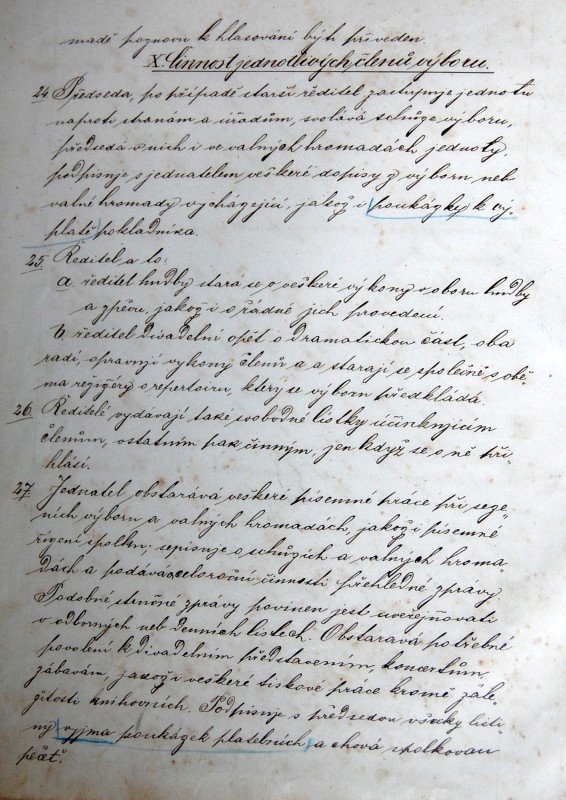 madě poznovu k hlasování býti přiveden.
X. Činnost jednotlivých členů výboru.
24 Předseda, po případě starší ředitel zastupuje jednotu
naproti stranám a úřadům, svolává schůze výboru,
předsedá v nich i ve valných hromadách jednoty,
podpisuje s jednatelem veškeré dopisy z výboru neb
valné hromady vycházející, jakož i poukázky k vý-
platě pokladníka.
25. Ředitel a to:
a. ředitel hudby stará se o veškeré výkony v oboru hudby
a zpěvu, jakož i o řádné jich provedení.
b. ředitel divadelní opět o dramatickou část, oba
radí, opravují výkony členů a a starají se společně s obě-
ma režiséry o repertoiru, který se výboru předkládá.
26. Ředitelé vydávají také svobodné lístky účinkujícím
členům, ostatním pak činným, jen když se o ně při-
hlásí.
27. Jednatel obstarává veškeré písemné práce při seze-
ních výboru a valných hromadách, jakož i písemné
řízení spolku; sepisuje o schůzích a valných hroma
dách a podává celoroční činnosti přehledné zprávy.
Podobné stručné zprávy povinen jest uveřejňovati
v odborných neb denních listech. Obstarává potřebné
povolení k divadelním představením, koncertům,
zábavám, jakož i veškeré tiskové práce kromě zále-
žitostí knihovních. Podpisuje s předsedou všecky listi-
ny vyjma poukázek platebních, a chová spolkovou
pečeť.